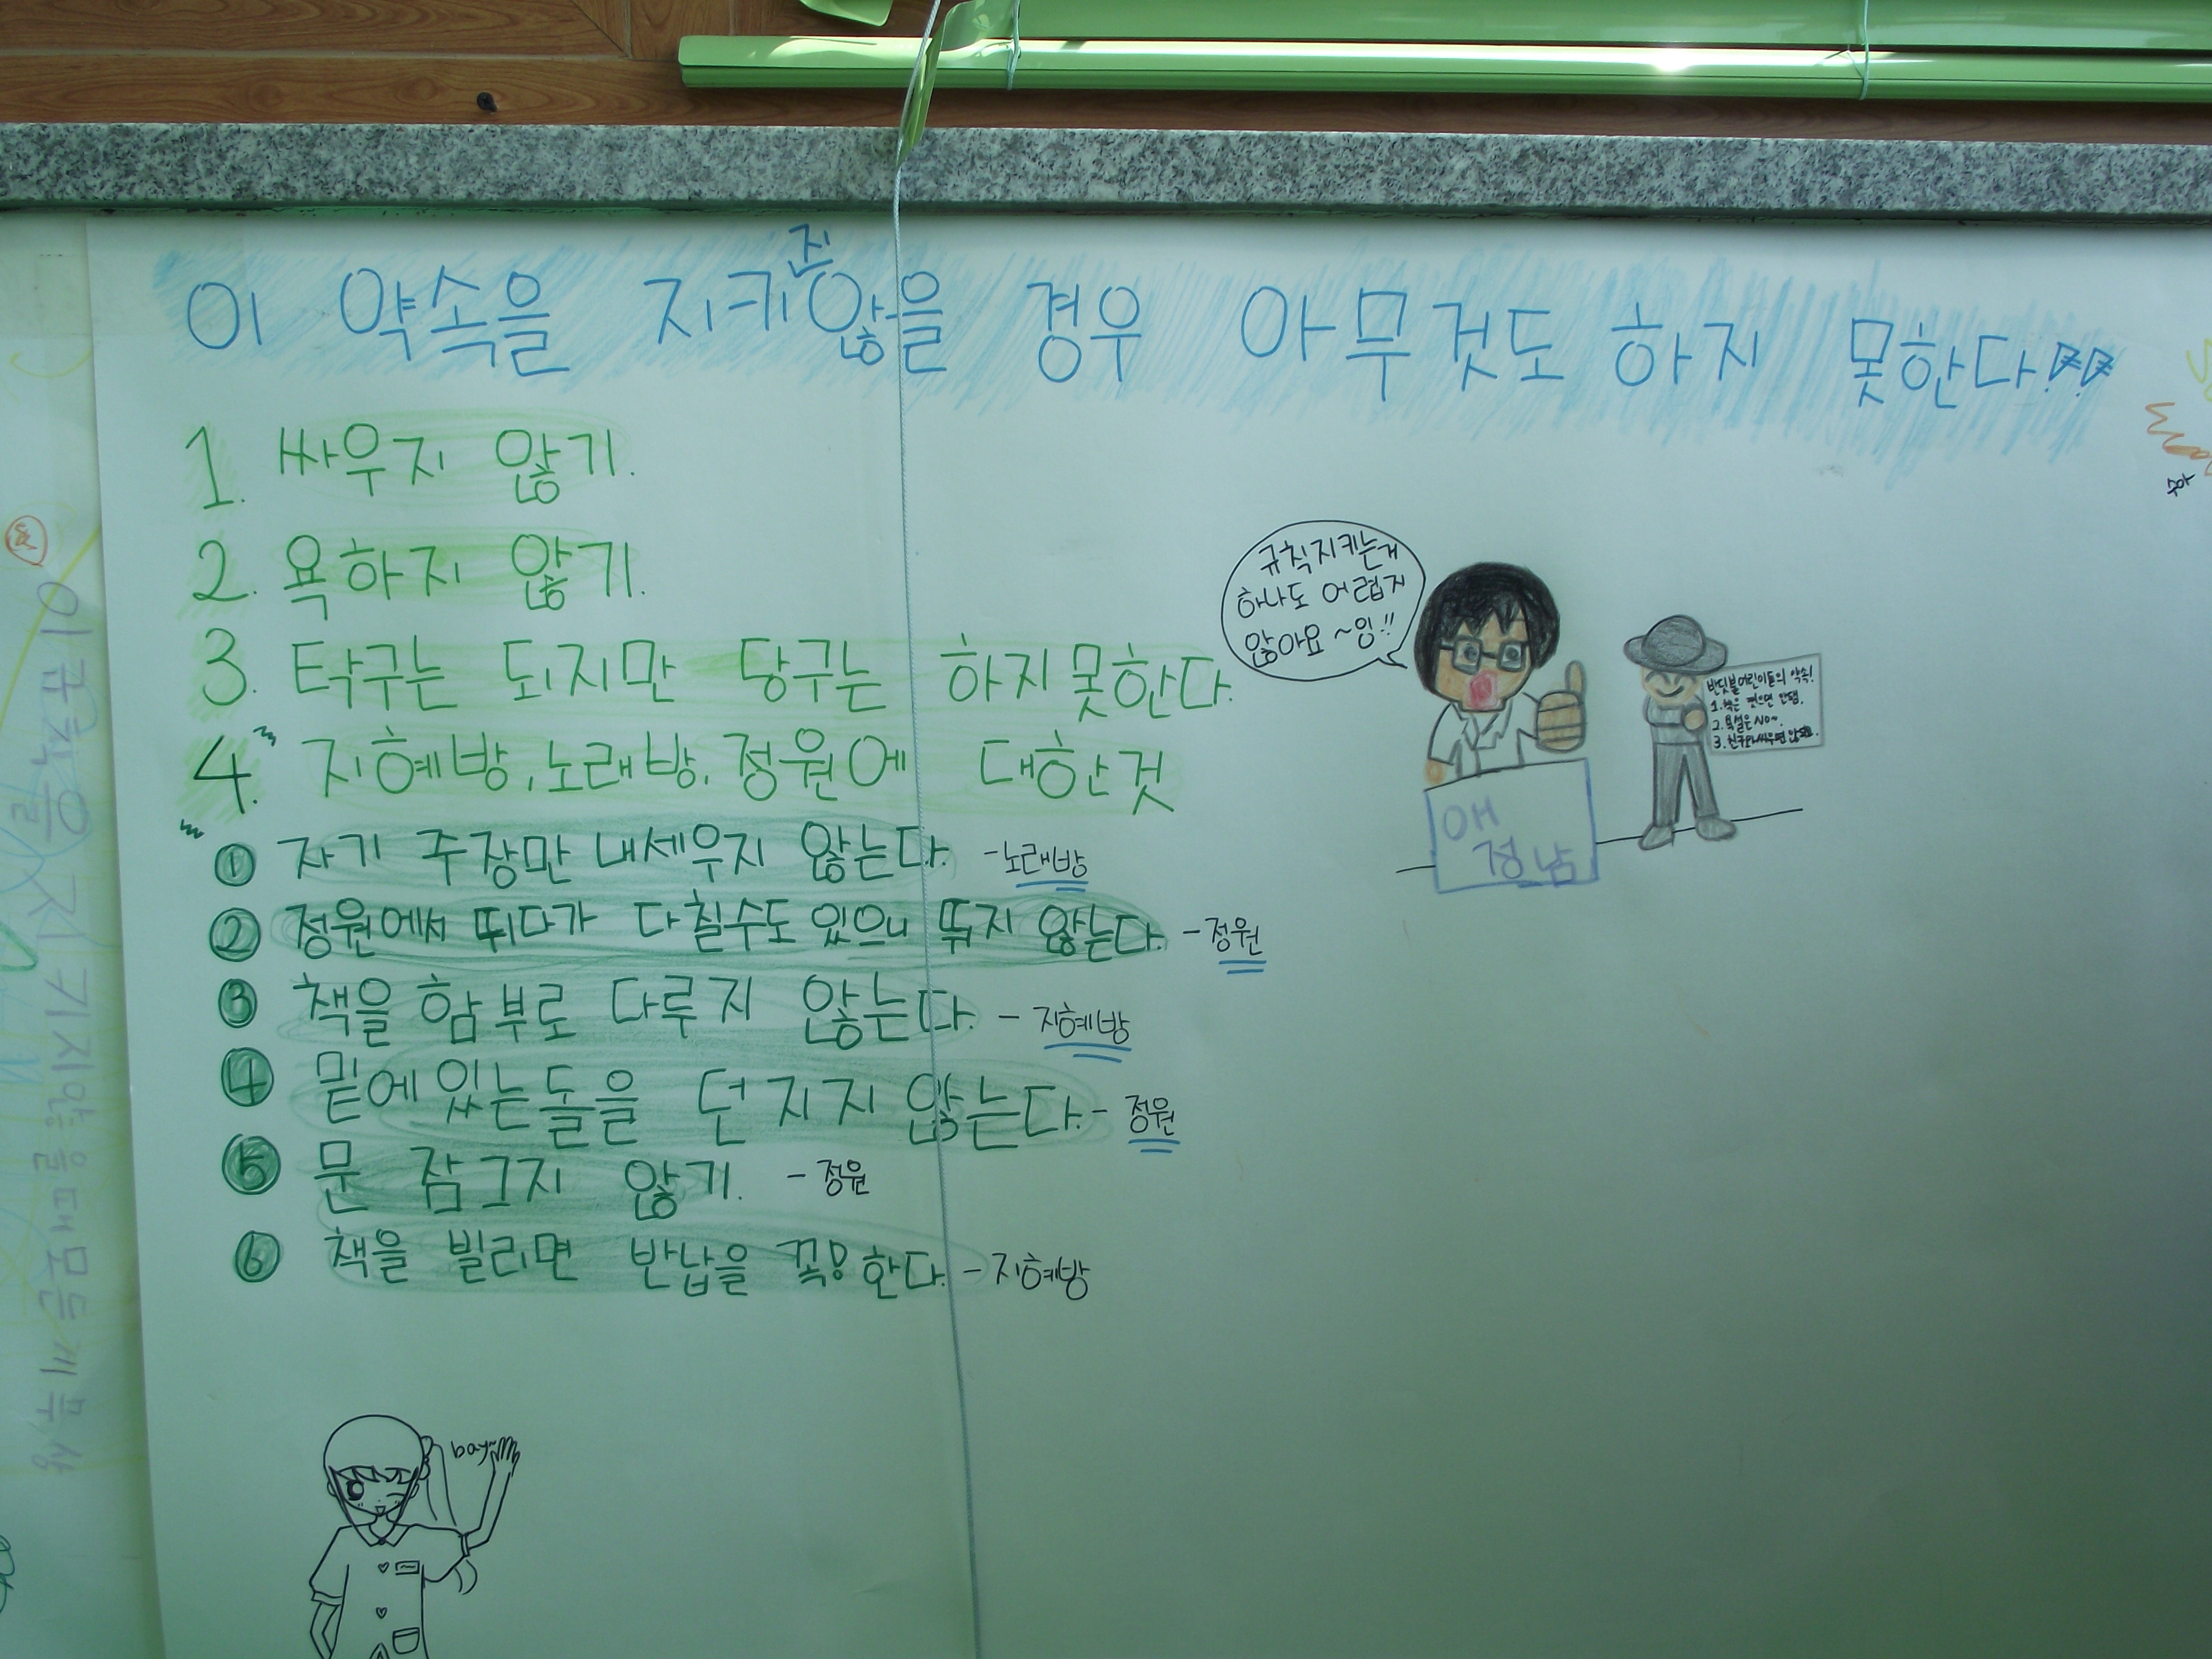 이 약속을 지키지 않을 경우 아무것도 하지 못한다!!
1. 싸우지 않기.
2. 욕하지 않기.
3. 탁구는 되지만 당구는 하지못한다.
4. 지혜방, 노래방, 정원에 대한것
① 자기 주장만 내세우지 않는다. -노래방
② 정원에서 뛰다가 다칠수도 있으니 뛰지 않는다. -정원
③ 책을 함부로 다루지 않는다. - 지혜방
④ 밑에있는돌을 던지지 않는다. - 정원
⑤ 문 잠그지 않기. - 정원
⑥ 책을 빌리면 반납을 꼭! 한다. - 지혜방
규칙지키는거
하나도 어렵지
않아요~잉!!
애
정남
반딧불어린이들의 약속!
2. 욕설은 NO~.
bay~
수아
이 규칙을 지키지않을때모든